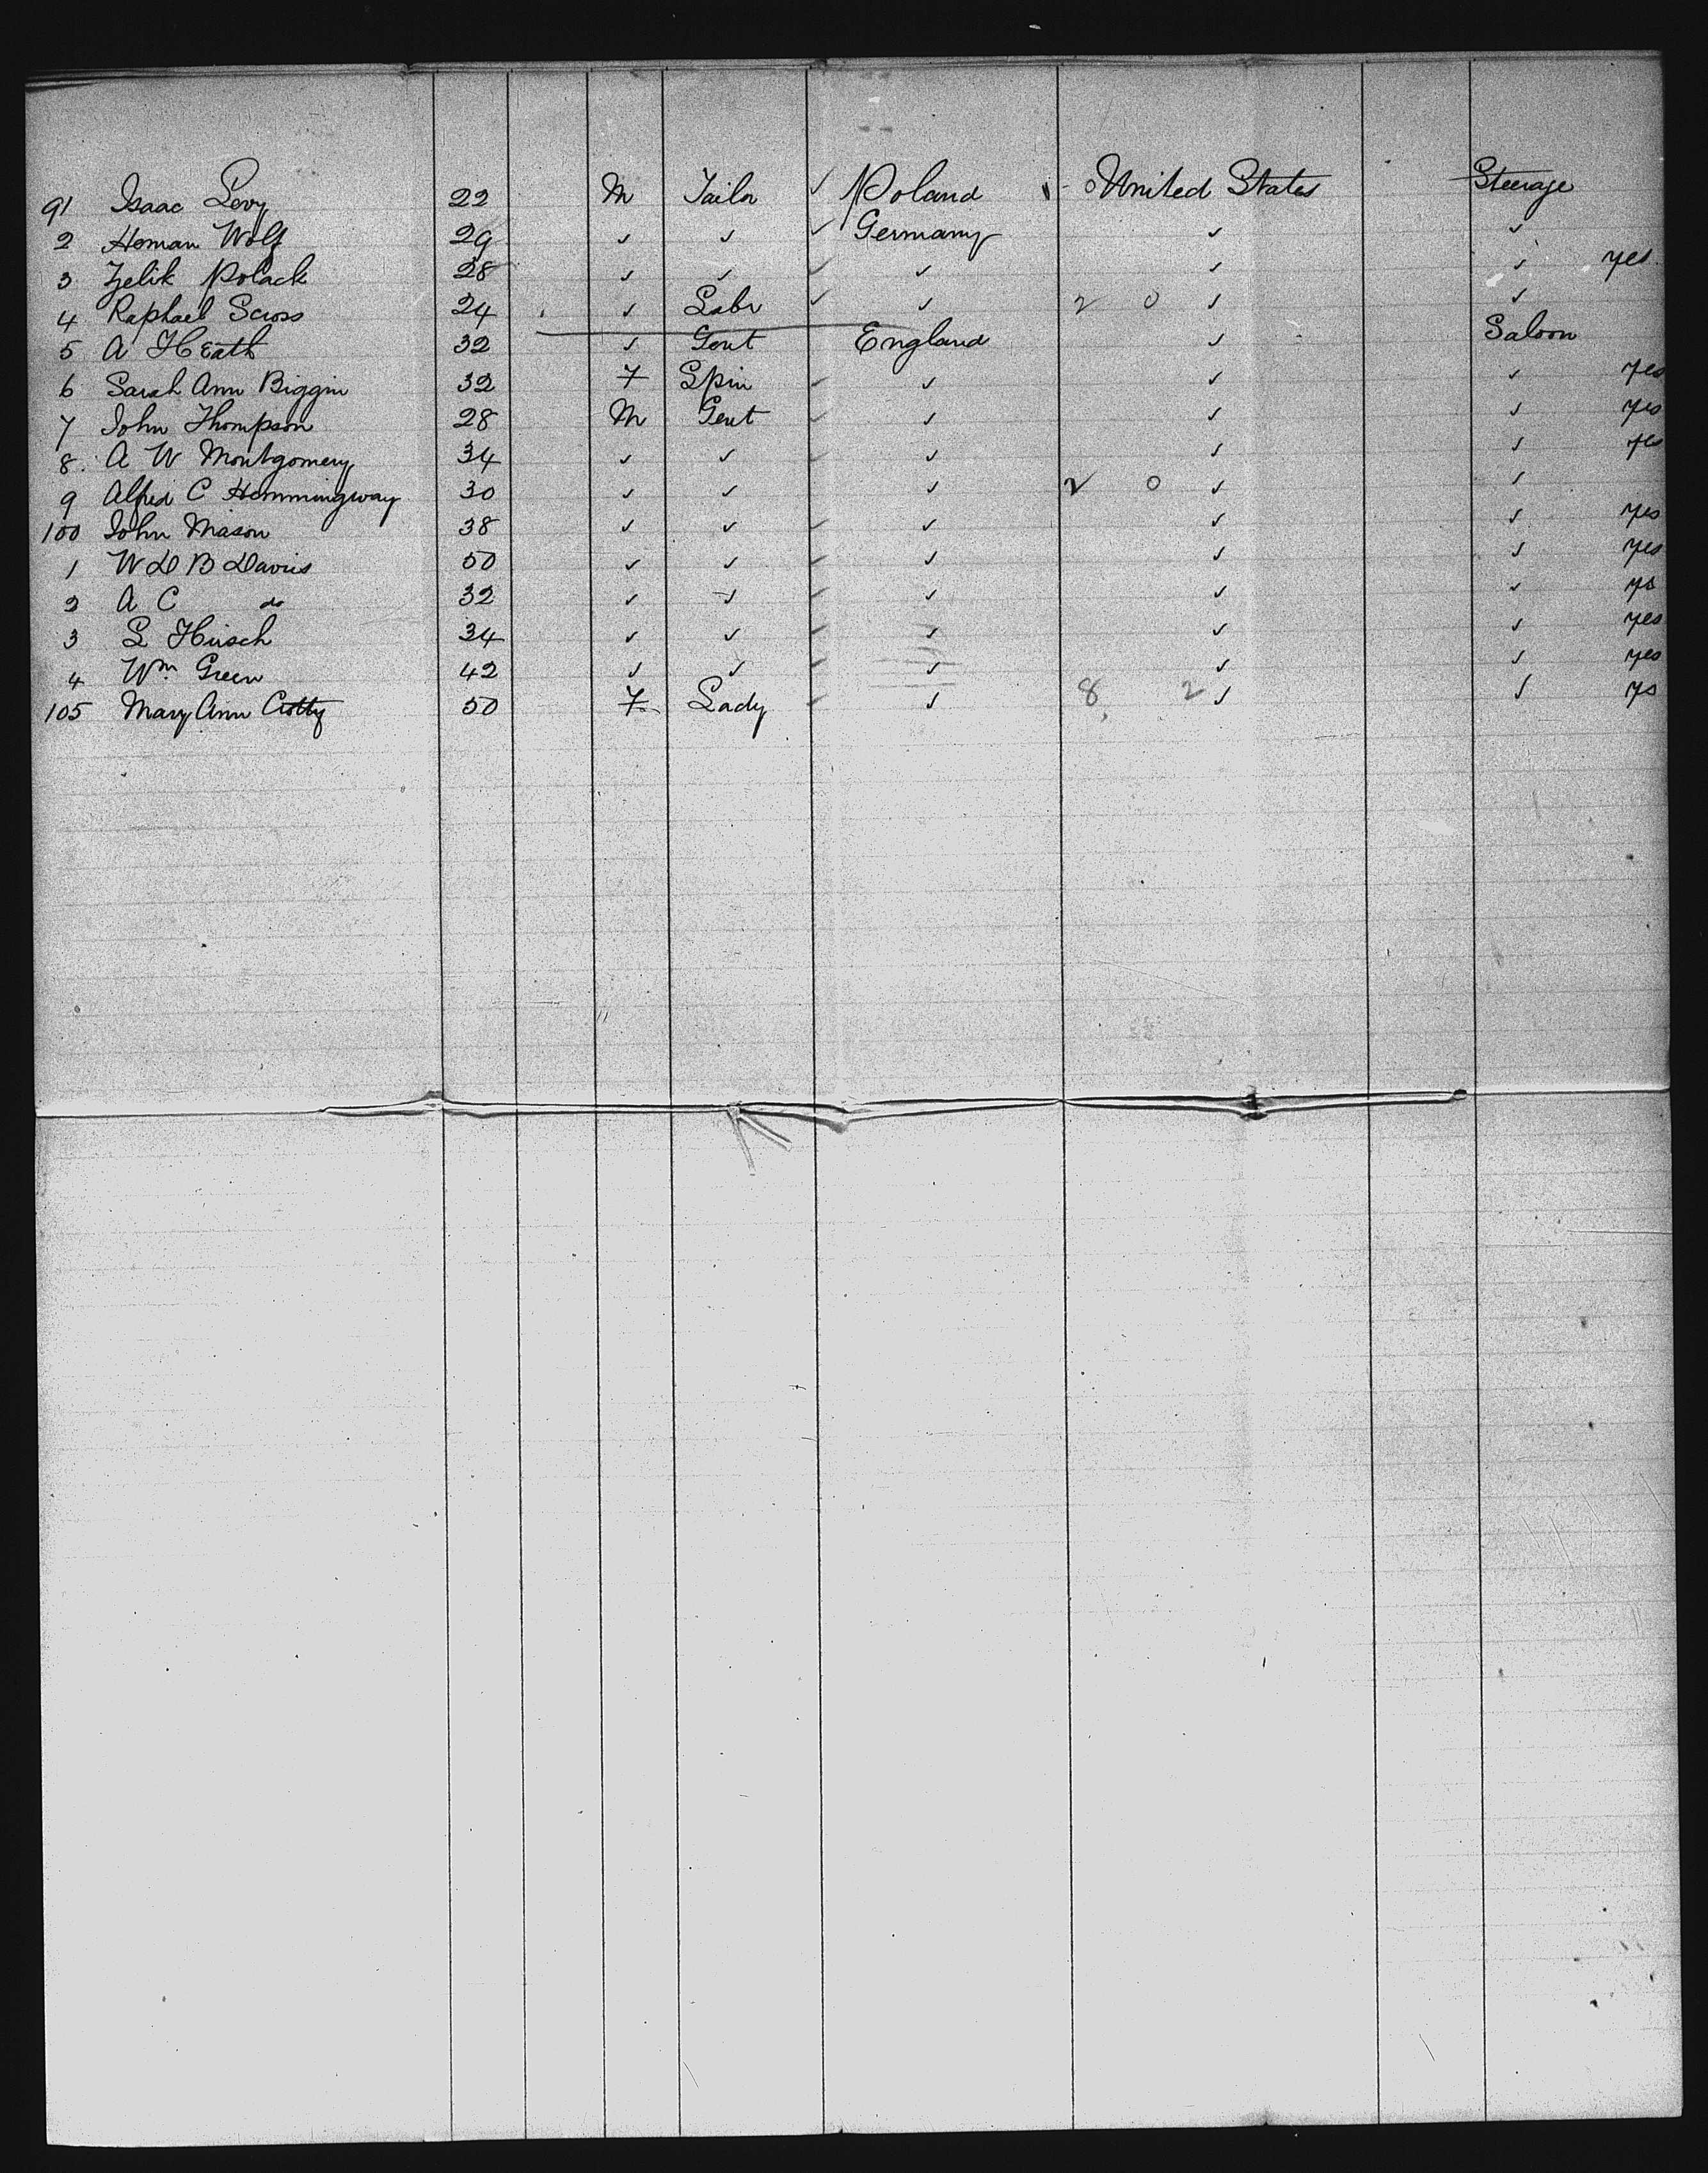 91 Isaac Levy 22 M Tailor ✓ Poland United States Steerage
2 Heman Wolf 29 ✓ ✓ ✓ Germany ✓ ✓
3 Zelik Polack 28 ✓ ✓ ✓ ✓ ✓ ✓ yes
4 Raphael Scross 24 ✓ Labr ✓ ✓ 2 0 ✓ ✓
5 A Heath 32 ✓ Gent England ✓ Saloon
6 Sarah Ann Biggin 32 F Spin ✓ ✓ ✓ ✓ yes
7 John Thompson 28 M Gent ✓ ✓ ✓ ✓ yes
8 A W Montgomery 34 ✓ ✓ ✓ ✓ ✓ ✓ yes
9 Alfred C Hemmingway 30 ✓ ✓ ✓ 2 0 ✓ ✓
100 John Mason 38 ✓ ✓ ✓ ✓ ✓ ✓ yes
1 W D B Davis 50 ✓ ✓ ✓ ✓ ✓ ✓ yes
2 A C do 32 ✓ ✓ ✓ ✓ ✓ ✓ ys
3 L Hirsch 34 ✓ ✓ ✓ ✓ ✓ ✓ yes
4 Wm Green 42 ✓ ✓ ✓ ✓ ✓ ✓ yes
105 Mary Ann Crotty 50 F Lady ✓ ✓ 8 2 ✓ ✓ ys